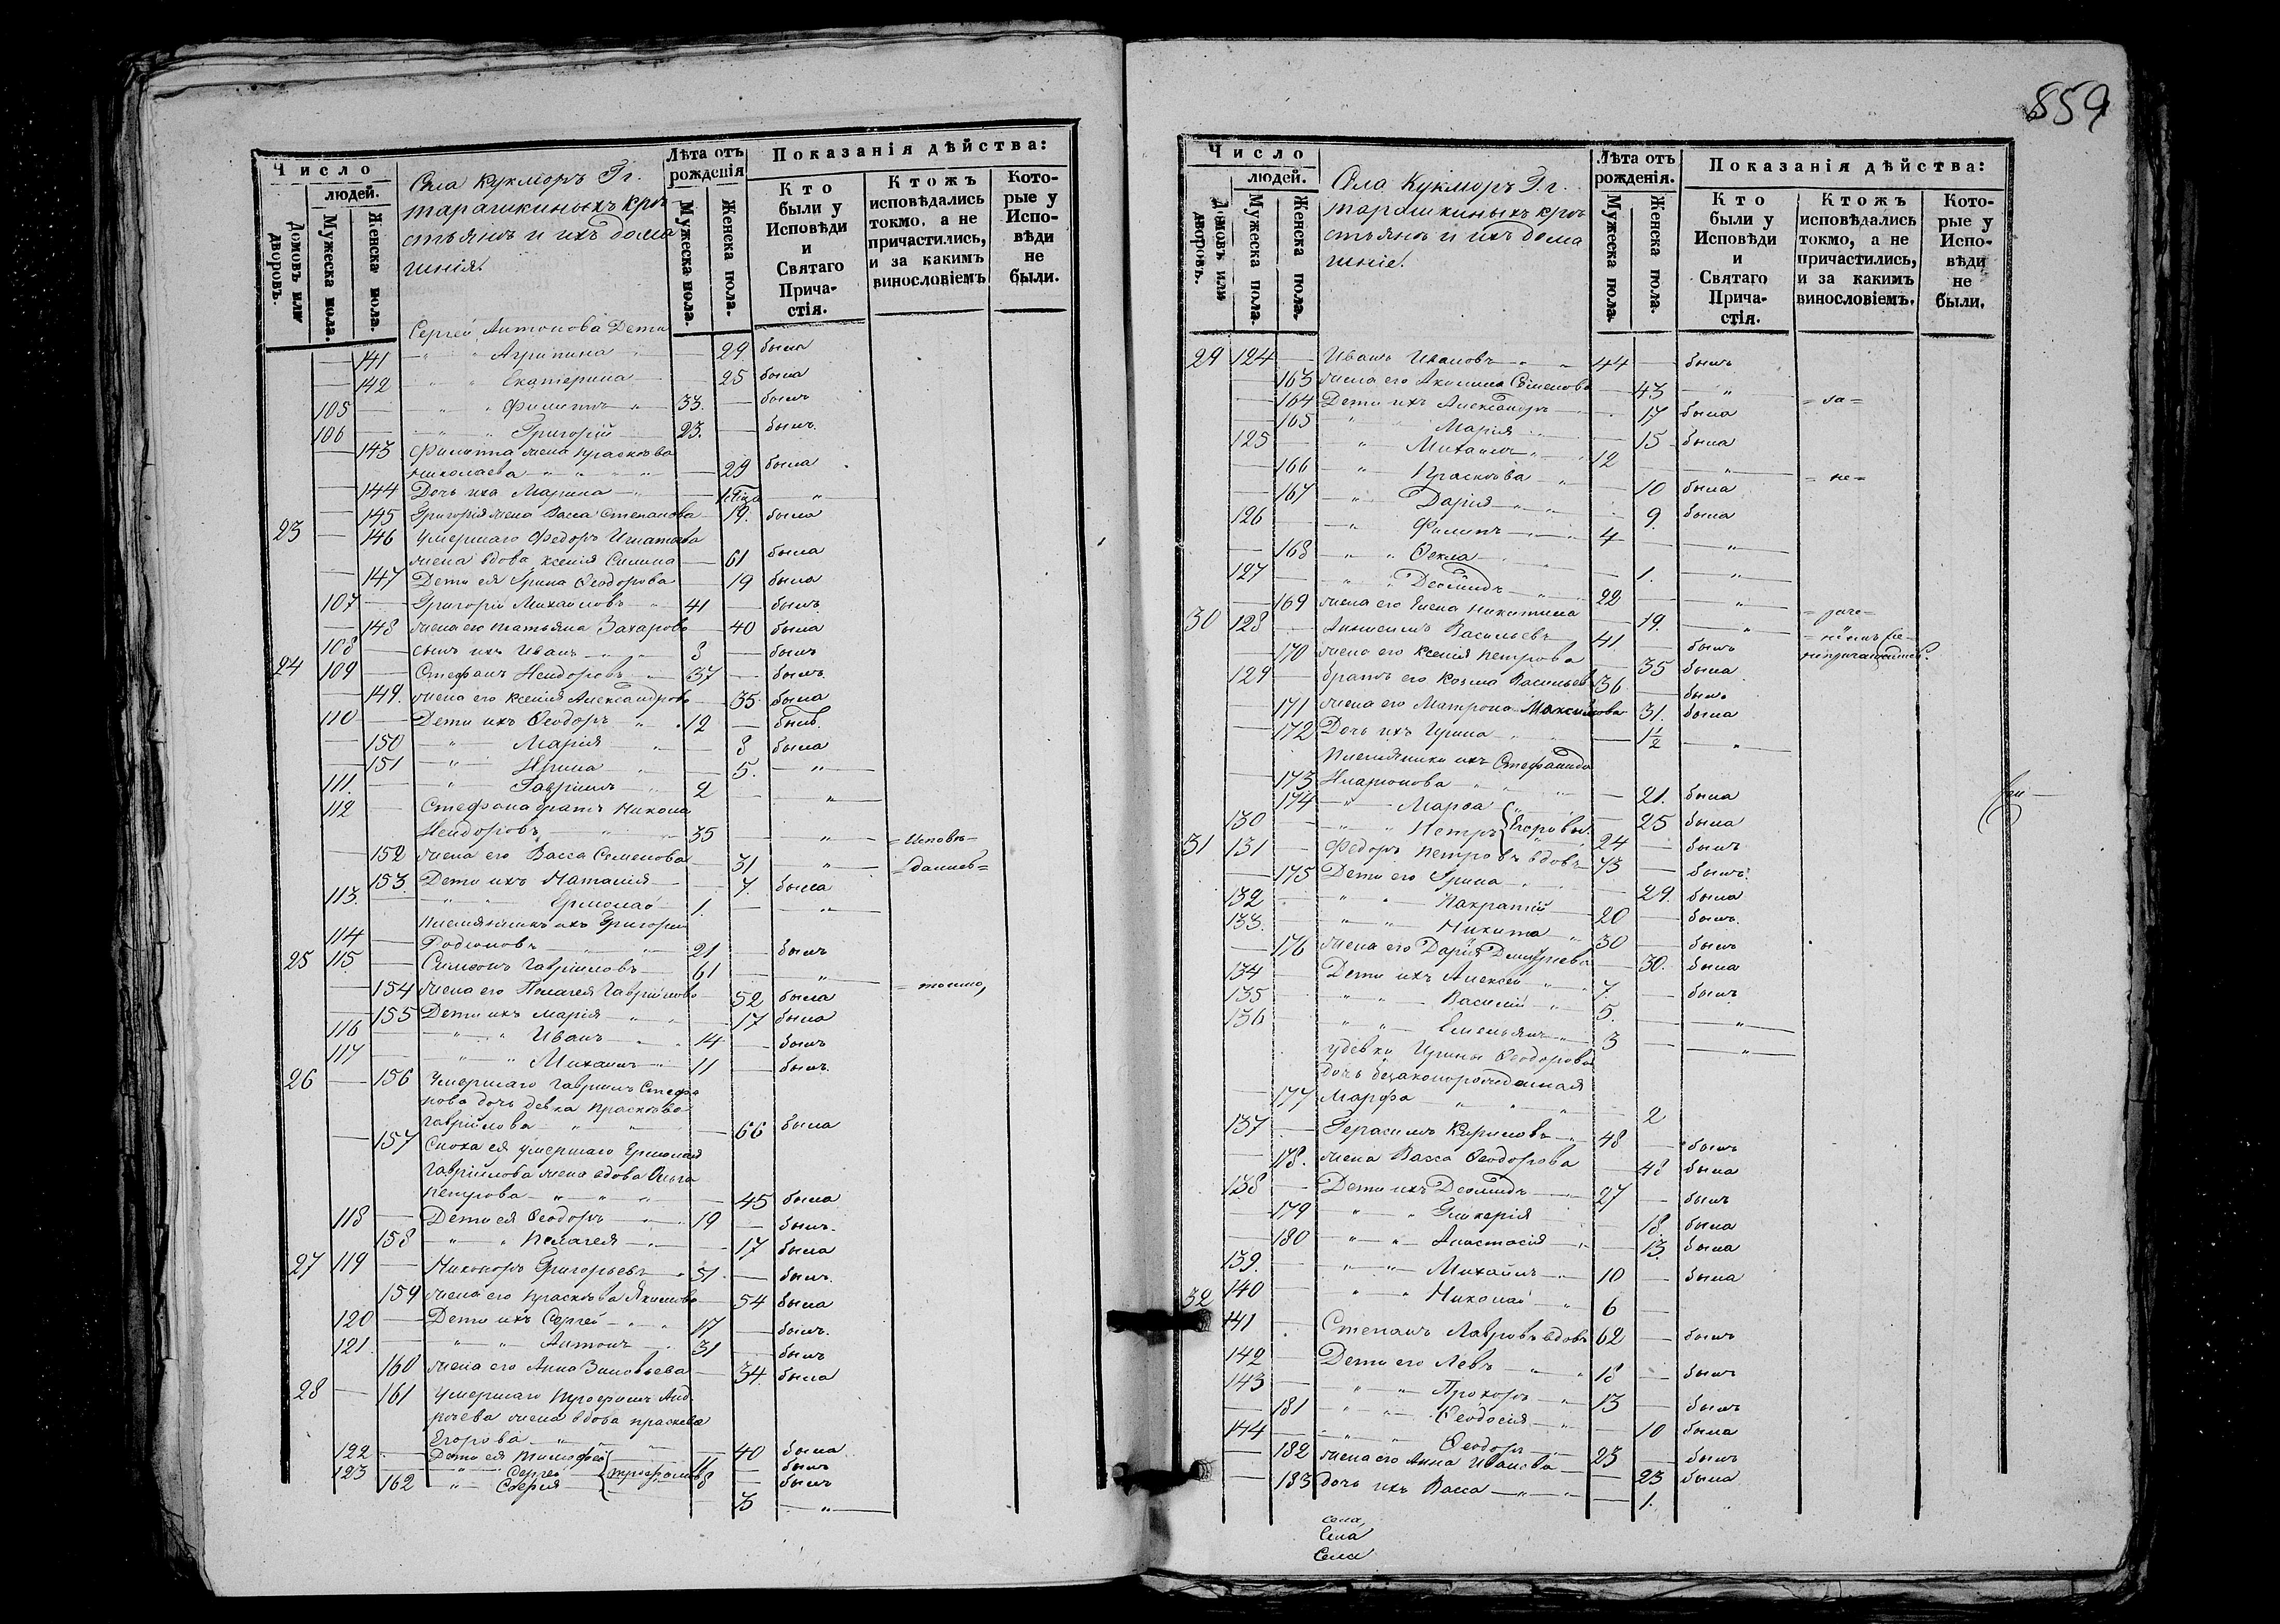 859
Число
людей.
Домовъ или дворовъ.
Мужеска пола.
Женска пола.
Села Кукморъ Гг.
Тарашкиныхъ кре
стьянъ и ихъ дома
шнія.
Лѣта отъ рожденія
Мужеска пола.
Женска пола.
Показанія дѣйства:
Кто были у Исповѣди и Святаго Причастія.
Ктожъ исповѣдались токмо, а не причастились, и за какимъ винословіемъ
Которые у Исповѣди не были.
Сергей Антонова Дети
141 Агрипина 29 была
142 Екатерина 25 была
105 Филиппъ 33. былъ
106 Григорій 23. былъ.
143 Филиппа жена Прасковья
Николаева 29 была
144 Дочь ихъ Марина
145 Григорія жена Васса Степанова 19. была
23 146 Умершаго Федоръ Игнатьева
жена вдова Ксенія Силина 61 была
147 Дети ея Ирина Феодорова 19 была
107 Григорій Михайловъ 41 былъ
148 жена его Татьяна Захарова 40 была
108 сынъ ихъ Иванъ 8 былъ
24 109 Стефанъ Исидоровъ 37 былъ
149. жена его Ксенія Александрова 35 была
110 Дети ихъ Феодоръ 12 былъ
150 Марія 8 была
151 Ирина 5.
111. Гавріилъ 2
112 Стефана братъ Никола
Исидоровъ 35 =Исповѣ=
152 жена его Васса Семенова 31 =дались=
153. Дети ихъ Наталія 7. была
113. Ермолай 1.
Племянникъ ихъ Григорій
114 Родионовъ 21 былъ
25 115. Симеонъ Гавріиловъ 61
154 жена его Пелагея Гаврійлова 52 была =токмо,
155 Дети ихъ Марія 17 была
116 Иванъ 14 былъ
117 Михаилъ 11 былъ.
26 156 Умершаго Гавріилъ Стефа
нова дочь девка Прасковья
Гаврійлова 66 была
157 Сноха ея умершаго Ермолая
Гаврійлова жена вдова Ольга
Петрова 45 была
118 Дети ея Феодоръ 19 былъ.
158 Пелагея 17 была
27 119 Никоноръ Григорьевъ 51 былъ.
159 жена его Прасковья Якимова 54 была
120 Дети ихъ Сергей 17 былъ.
121. Антонъ 31 былъ
160 жена его Анна Зиновьева 34. была
28 161 Умершаго Трофимъ Анд
реева жена вдова Прасковья
Егорова 40 была
122 Дети ея Тимофей 11 былъ
123 Сергей Трофимовы 8 былъ
162 Софія 3
Число
людей.
Домовъ или дворовъ.
Мужеска пола.
Женска пола.
Села Кукморъ Г.г.
Тарашкиныхъ кре
стьянъ и ихъ дома
шніе.
Лѣта отъ рожденія.
Мужеска пола.
Женска пола.
Показанія дѣйства:
Кто были у Исповѣди и Святаго Причастія.
Ктожъ исповѣдались токмо, а не причастились, и за какимъ винословіемъ.
Которые у Исповѣди не были.
29 124 Иванъ Ивановъ 44 былъ
163 жена его Акилина Семенова 43
164 Дети ихъ Александра 17 была =за=
165 Марія 15 была
125 Михаилъ 12
166 Прасковья 10 была =не=
167 Дарія 9. была
126 Филипъ 4
168 Фекла 1.
127 Деомидъ 22
169 жена его Елена Никитина 19.
30 128 Анисимъ Васильевъ 41 былъ
170 жена его Ксенія Петрова 35 была
129 братъ его Козма Васильевъ 36 былъ
171 жена его Матрона Максимова 31. была
172 Дочь ихъ Ирина 1½
Племянники ихъ Стефанида
173 Иларионова 21. была
174 Марфа 25 была
130 Петръ Егоровы 24 былъ
31 131 Федоръ Петровъ вдовъ 73 былъ.
175 Дети его Ирина 29. была
132 Панкратій 20 былъ.
133. Никита 30 былъ
176 жена его Дарія Дмитріева 30. была
134 Дети ихъ Алексей 7. былъ
135 Василій 5.
136 Емельянъ 3
у девки Ирины Феодоровой
дочь беззаконорожденная
177 Марфа 2
137 Герасимъ Кириловъ 48 былъ
178. жена Васса Феодорова 48 была
138 Дети ихъ Деомидъ 27 былъ
179 Гликерія 18. была
180 Анастасія 13. была
139. Михаилъ 10 была
140 Николай 6
32 141 Степанъ Лавровъ вдовъ 62 былъ
142 Дети его Левъ 18 былъ
143 Прохоръ 13 былъ
181 Феодосія 10 была
144 Феодоръ 23 былъ
182 жена его Анна Иванова 23 была
183 дочь ихъ Васса 1.
села,
Села
Села